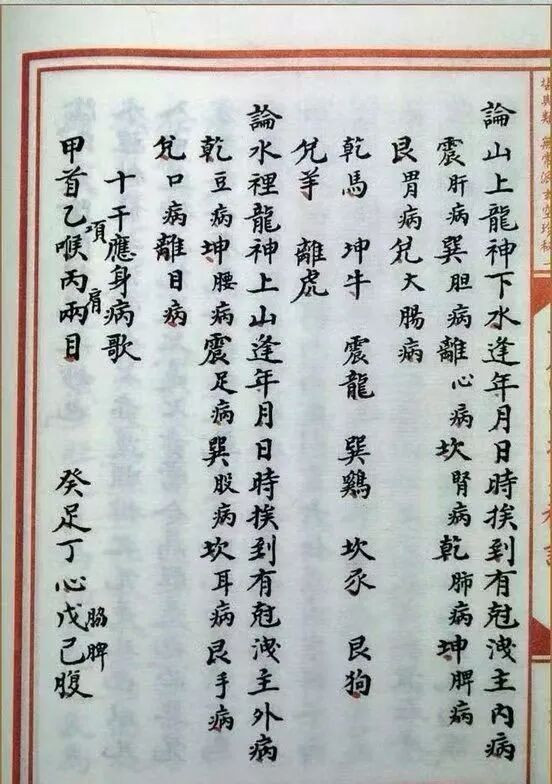 論山上龍神下水逢年月日時挨到有尅洩主內病
震肝病巽胆病離心病坎腎病乾肺病坤脾病
艮胃病兌大腸病
乾馬 坤牛 震龍 巽鷄 坎豕 艮狗
兌羊 離虎
論水裡龍神上山逢年月日時挨到有尅洩主外病
乾豆病坤腰病震足病巽股病坎耳病艮手病
兌口病離目病
十干應身病歌
甲首乙喉丙兩目 癸足丁心戊己腹
項 肩 胳脾